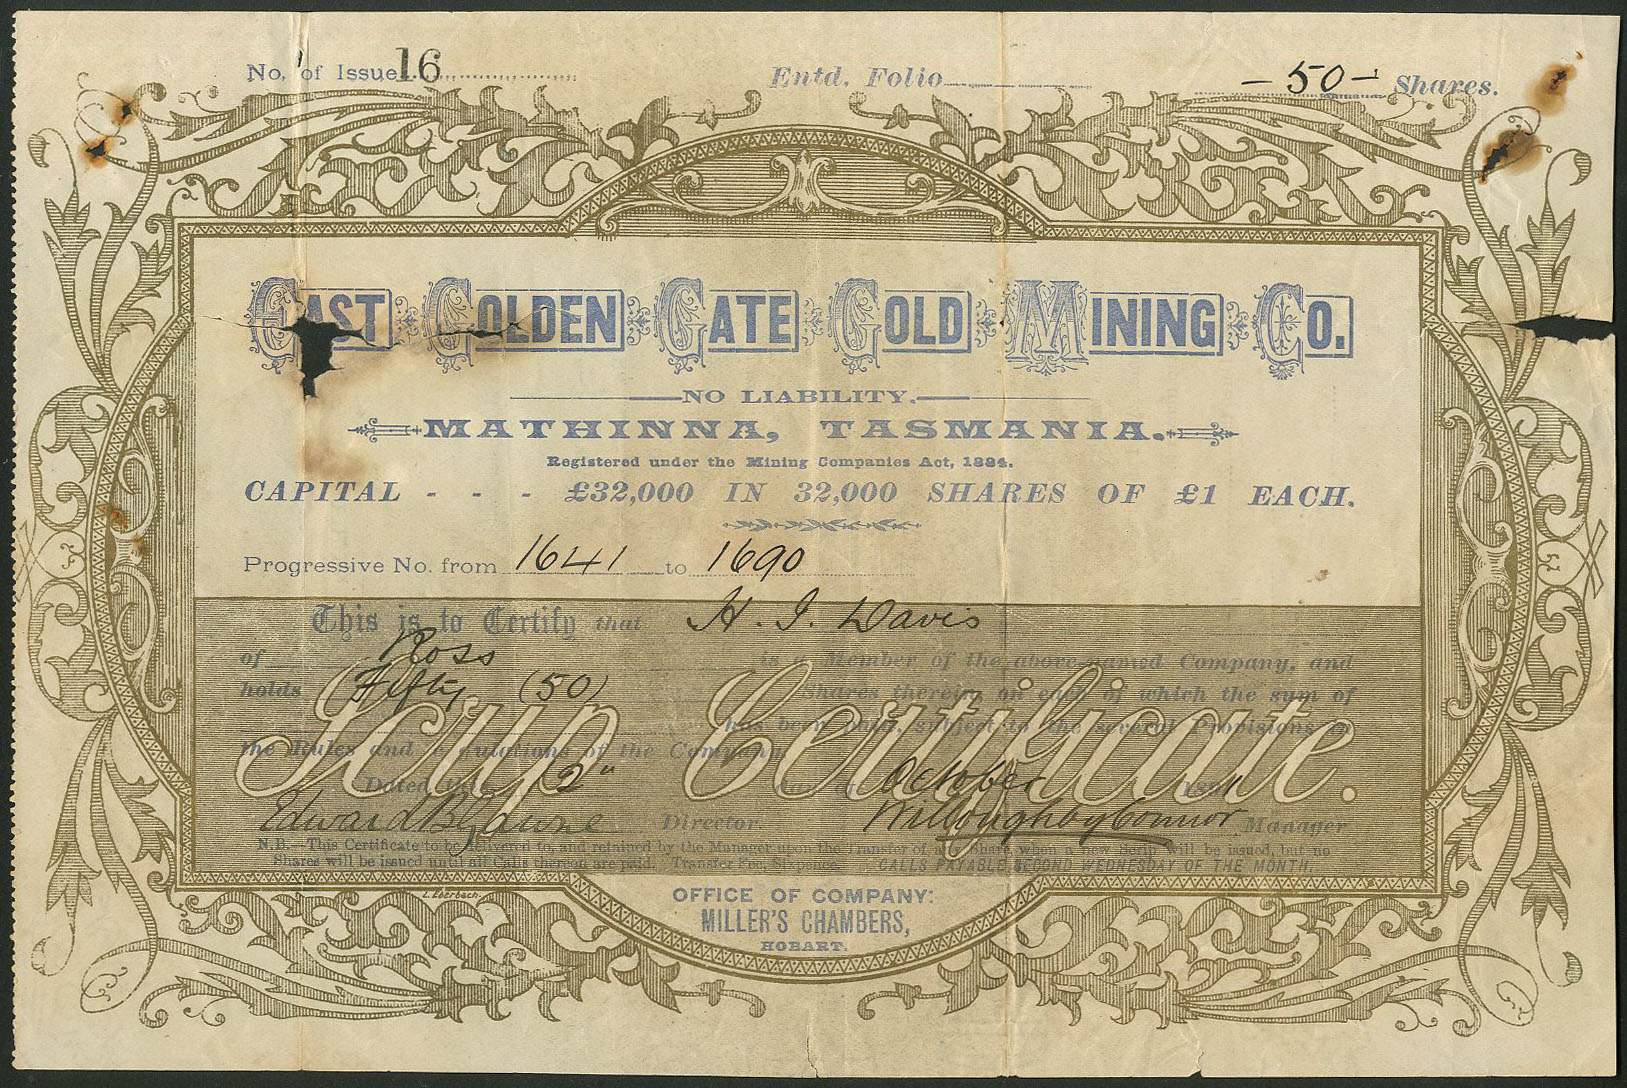 No. of Issue 16 Entd. Folio — 50 — Shares.
EAST GOLDEN GATE GOLD MINING CO.
NO LIABILITY.
MATHINNA, TASMANIA.
Registered under the Mining Companies Act, 1884.
CAPITAL - - - £32,000 IN 32,000 SHARES OF £1 EACH.
Progressive No. from 1641 to 1690
This is to Certify that H. J. Davis
of Ross is a Member of the above-named Company, and
holds Fifty (50) Shares therein, on each of which the sum of
has been paid, subject to the several Provisions in
the Rules and Regulations of the Company.
Scrip Certificate.
Dated this 2nd day of October 1891
Edward B Director. Willoughby Connor Manager
N.B.—This Certificate to be delivered to, and retained by the Manager upon the Transfer of any Share, when a new Scrip will be issued, but no
Shares will be issued until all Calls thereon are paid. Transfer Fee, Sixpence. CALLS PAYABLE SECOND WEDNESDAY OF THE MONTH.
OFFICE OF COMPANY:
MILLER'S CHAMBERS,
HOBART.